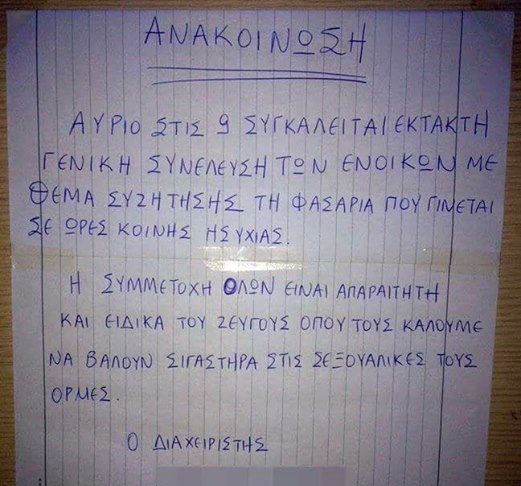 ΑΝΑΚΟΙΝΩΣΗ
ΑΥΡΙΟ ΣΤΙΣ 9 ΣΥΓΚΑΛΕΙΤΑΙ ΕΚΤΑΚΤΗ
ΓΕΝΙΚΗ ΣΥΝΕΛΕΥΣΗ ΤΩΝ ΕΝΟΙΚΩΝ ΜΕ
ΘΕΜΑ ΣΥΖΗΤΗΣΗΣ ΤΗ ΦΑΣΑΡΙΑ ΠΟΥ ΓΙΝΕΤΑΙ
ΣΕ ΩΡΕΣ ΚΟΙΝΗΣ ΗΣΥΧΙΑΣ.
Η ΣΥΜΜΕΤΟΧΗ ΟΛΩΝ ΕΙΝΑΙ ΑΠΑΡΑΙΤΗΤΗ
ΚΑΙ ΕΙΔΙΚΑ ΤΟΥ ΖΕΥΓΟΥΣ ΟΠΟΥ ΤΟΥΣ ΚΑΛΟΥΜΕ
ΝΑ ΒΑΛΟΥΝ ΣΙΓΑΣΤΗΡΑ ΣΤΙΣ ΣΕΞΟΥΑΛΙΚΕΣ ΤΟΥΣ
ΟΡΜΕΣ.
Ο ΔΙΑΧΕΙΡΙΣΤΗΣ